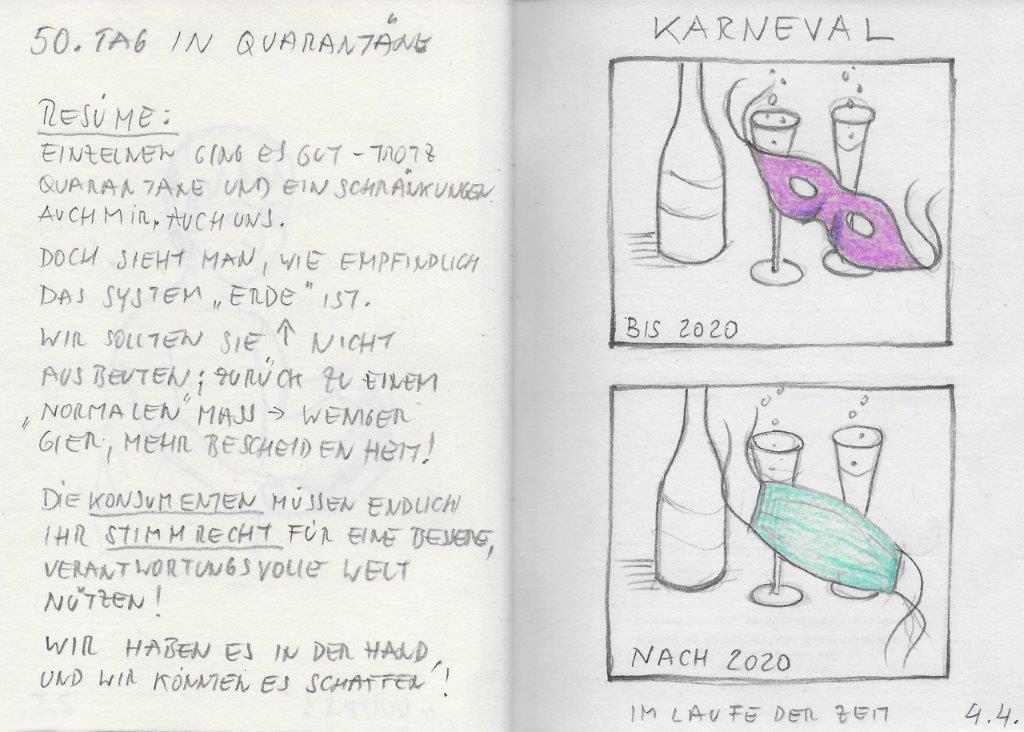 50. TAG IN QUARANTÄNE
RESÜME:
EINZELNEN GING ES GUT – TROTZ
QUARANTÄNE UND EINSCHRÄNKUNGEN.
AUCH MIR, AUCH UNS.
DOCH SIEHT MAN, WIE EMPFINDLICH
DAS SYSTEM „ERDE" IST.
WIR SOLLTEN SIE ↑ NICHT
AUSBEUTEN; ZURÜCK ZU EINEM
„NORMALEN" MASS → WENIGER
GIER, MEHR BESCHEIDENHEIT!
DIE KONSUMENTEN MÜSSEN ENDLICH
IHR STIMMRECHT FÜR EINE BESSERE,
VERANTWORTUNGSVOLLE WELT
NÜTZEN!
WIR HABEN ES IN DER HAND,
UND WIR KÖNNTEN ES SCHAFFEN!
KARNEVAL
BIS 2020
NACH 2020
IM LAUFE DER ZEIT 4.4.